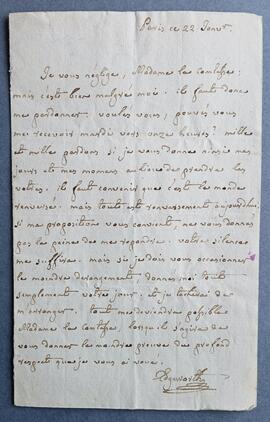 Paris ce 22 Janvr.
Je vous néglige, Madame la comtesse;
mais c'est bien malgré moi. il faut donc
me pardonner. voulés vous, pouvés vous
me recevoir mardi vers onze heures? mille
et mille pardons si je vous donne ainsi mes
jours et mes momens au lieu de prendre les
votres. il faut convenir que c'est le monde
renversé. mais tout est renversement aujourd'hui.
Si ma proposition vous convient, ne vous donnez
pas la peine de me repondre. votre silence
me suffira. mais si je dois vous occasionner
le moindre derangement, donnez moi tout
simplement votre jour. et je tacherai de
m'arranger. tout me deviendra possible
Madame la comtesse, lorsqu'il s'agira de
vous donner la moindre preuve du profond
respect que je vous ai voué.
Edgeworth